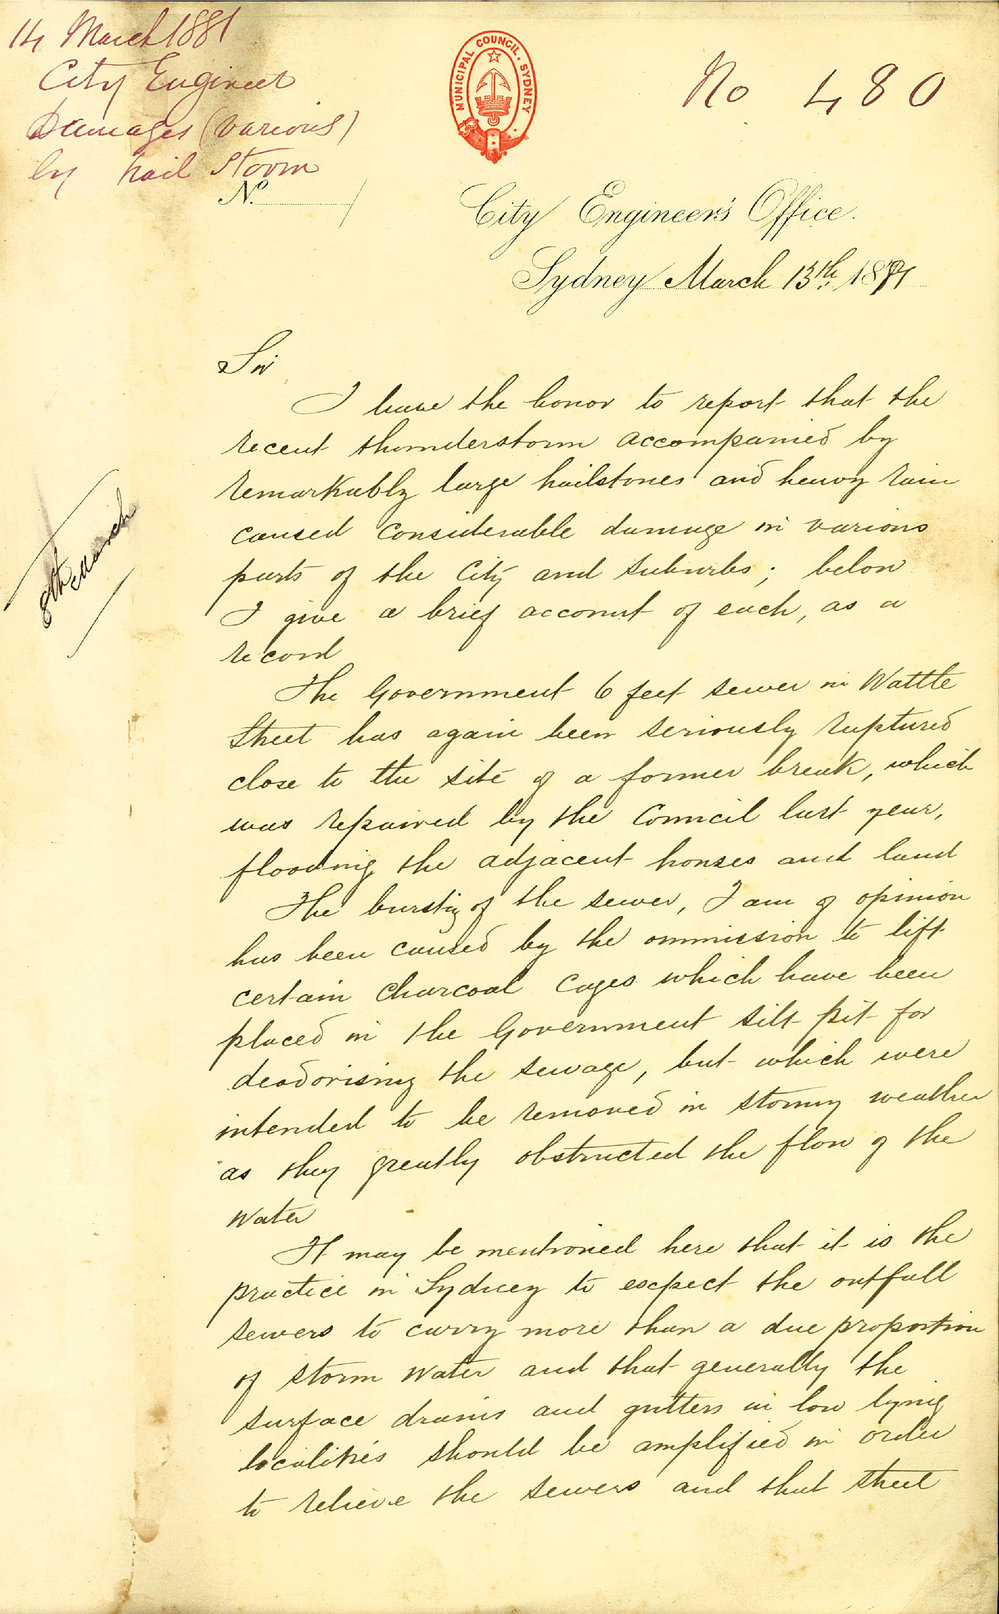 14 March 1881
City Engineer
Damages (various)
by hail Storm
No 480
MUNICIPAL COUNCIL. SYDNEY
No.
City Engineer's Office.
Sydney March 13th. 1881
8th March
Sir
I have the honor to report that the
recent thunderstorm accompanied by
remarkably large hailstones and heavy rain
caused considerable damage in various
parts of the City and suburbs; below
I give a brief account of each, as a
record
The Government 6 feet sewer in Wattle
Street has again been seriously ruptured
close to the site of a former break, which
was repaired by the Council last year,
flooding the adjacent houses and land
The burstig of the sewer, I am of opinion
has been caused by the ommission to lift
certain charcoal cages which have been
placed in the Government silt pit for
deodorising the sewage, but which were
intended to be removed in stormy weather
as they greatly obstructed the flow of the
water
It may be mentioned here that it is the
practice in Sydney to expect the outfall
sewers to carry more than a due proportion
of storm water and that generally the
surface drains and gutters in low lying
localities should be amplified in order
to relieve the sewers and that street